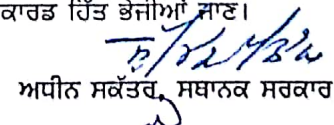 ਕਾਰਡ ਹਿੱਤ ਭੇਜੀਆਂ ਜਾਣ।
ਅਧੀਨ ਸਕੱਤਰ, ਸਥਾਨਕ ਸਰਕਾਰ